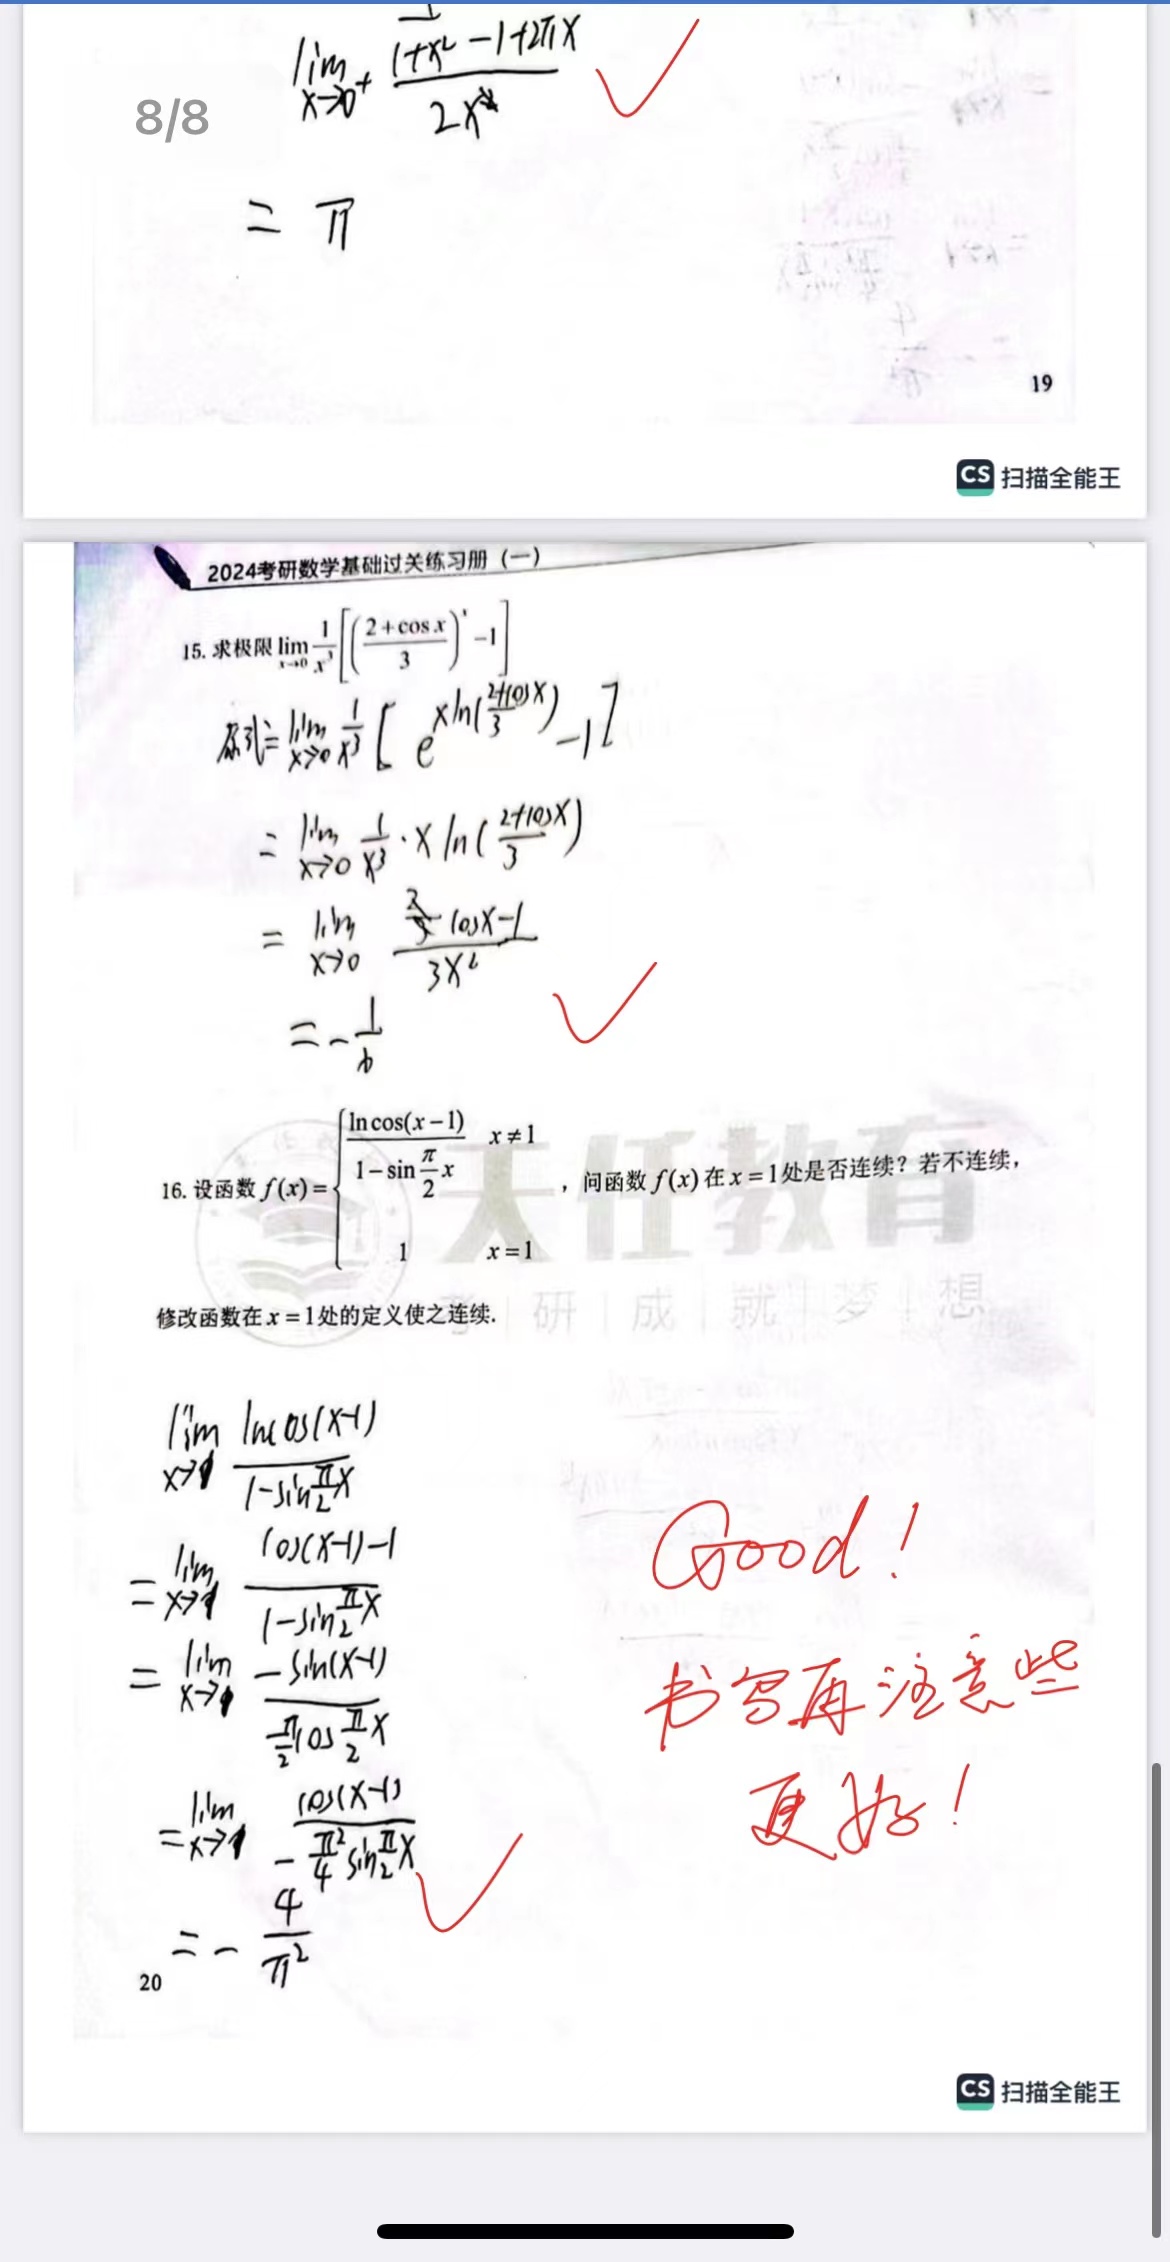 lim x→0⁺ (1/(1+x²) -1+2πx)/(2x)
8/8
= π
19
CS 扫描全能王
2024考研数学基础过关练习册（一）
15. 求极限 lim x→0 1/x³ [((2+cos x)/3)^x -1]
原式= lim x→0 1/x³ [e^(x ln((2+cosx)/3)) -1]
= lim x→0 1/x³ · x ln((2+cosx)/3)
= lim x→0 (cosx-1)/(3x²)
= -1/6
16. 设函数 f(x) = { ln cos(x-1)/(1-sin π/2 x) x≠1
1 x=1 ，问函数 f(x) 在 x=1处是否连续？若不连续，
天任教育
考|研|成|就|梦|想
修改函数在 x=1处的定义使之连续.
lim x→1 lncos(x-1)/(1-sin π/2 x)
= lim x→1 (cos(x-1)-1)/(1-sin π/2 x)
= lim x→1 -sin(x-1)/(-π/2 cos π/2 x)
= lim x→1 cos(x-1)/(-π²/4 sin π/2 x)
= - 4/π²
Good!
书写再注意些
更好!
20
CS 扫描全能王